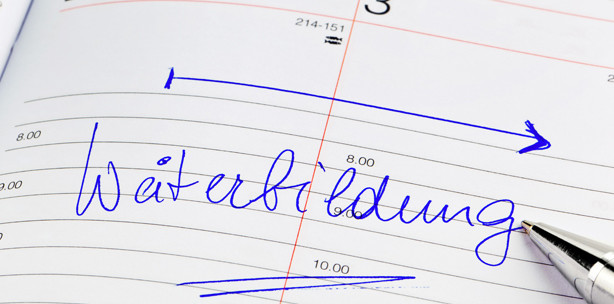 3
214-151
2
8.00
8.00
Weiterbildung
9.00
9.00
10.00